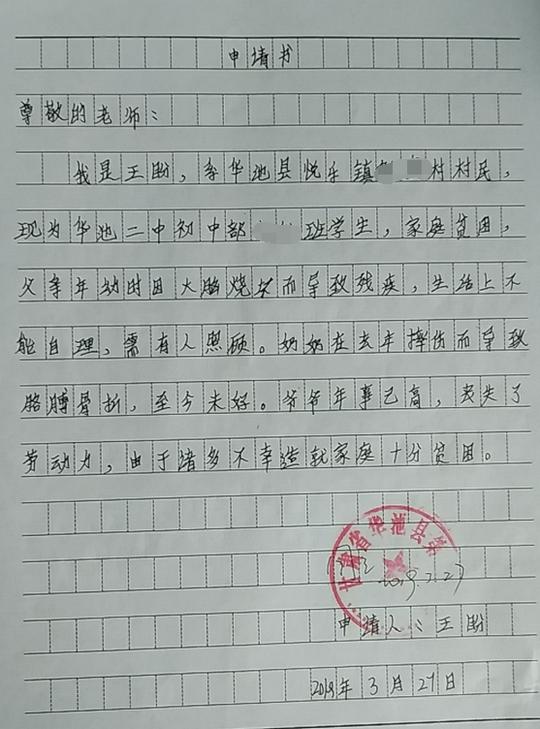 申请书
尊敬的老师：
我是王盼，系华池县悦乐镇 村村民，
现为华池二中初中部 班学生，家庭贫困，
父亲年幼时因大脑烧坏而导致残疾，生活上不
能自理，需有人照顾。奶奶在去年摔伤而导致
胳膊骨折，至今未好。爷爷年事已高，丧失了
劳动力，由于诸多不幸造就家庭十分贫困。
甘肃省华池县第
申请人：王盼
2019年3月27日